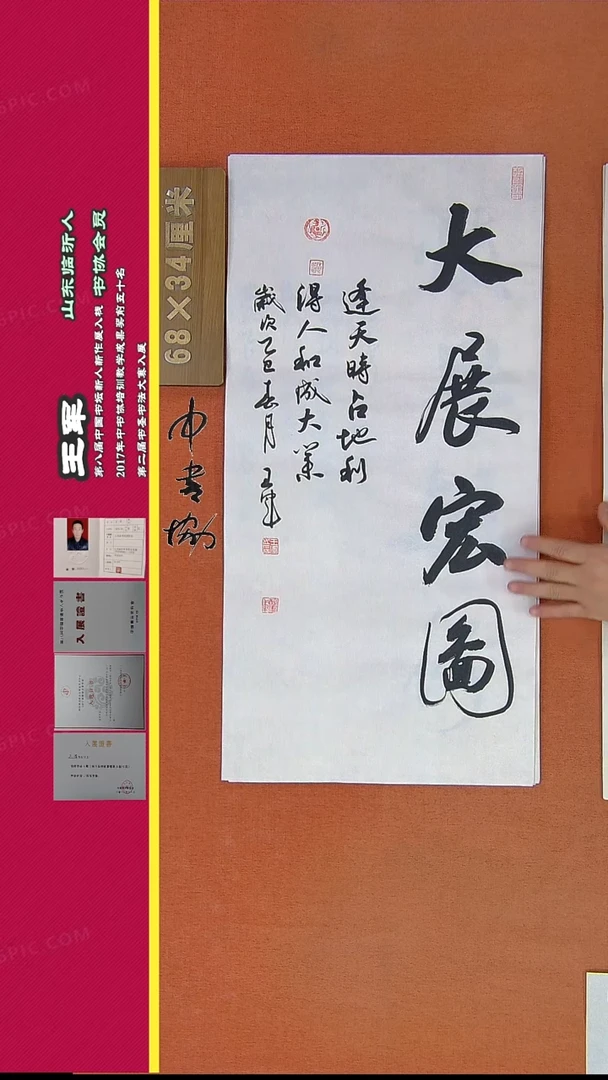 大展宏圖
逢天時占地利
得人和成大業
歲次乙巳春月 王軍
68×34厘米
中書协
山东临沂人
书协会员
王军
第八届中国书坛新人新作展入展
2017年中书协培训教学成果奖前五十名
第二届书圣书法大赛入展
入展證書